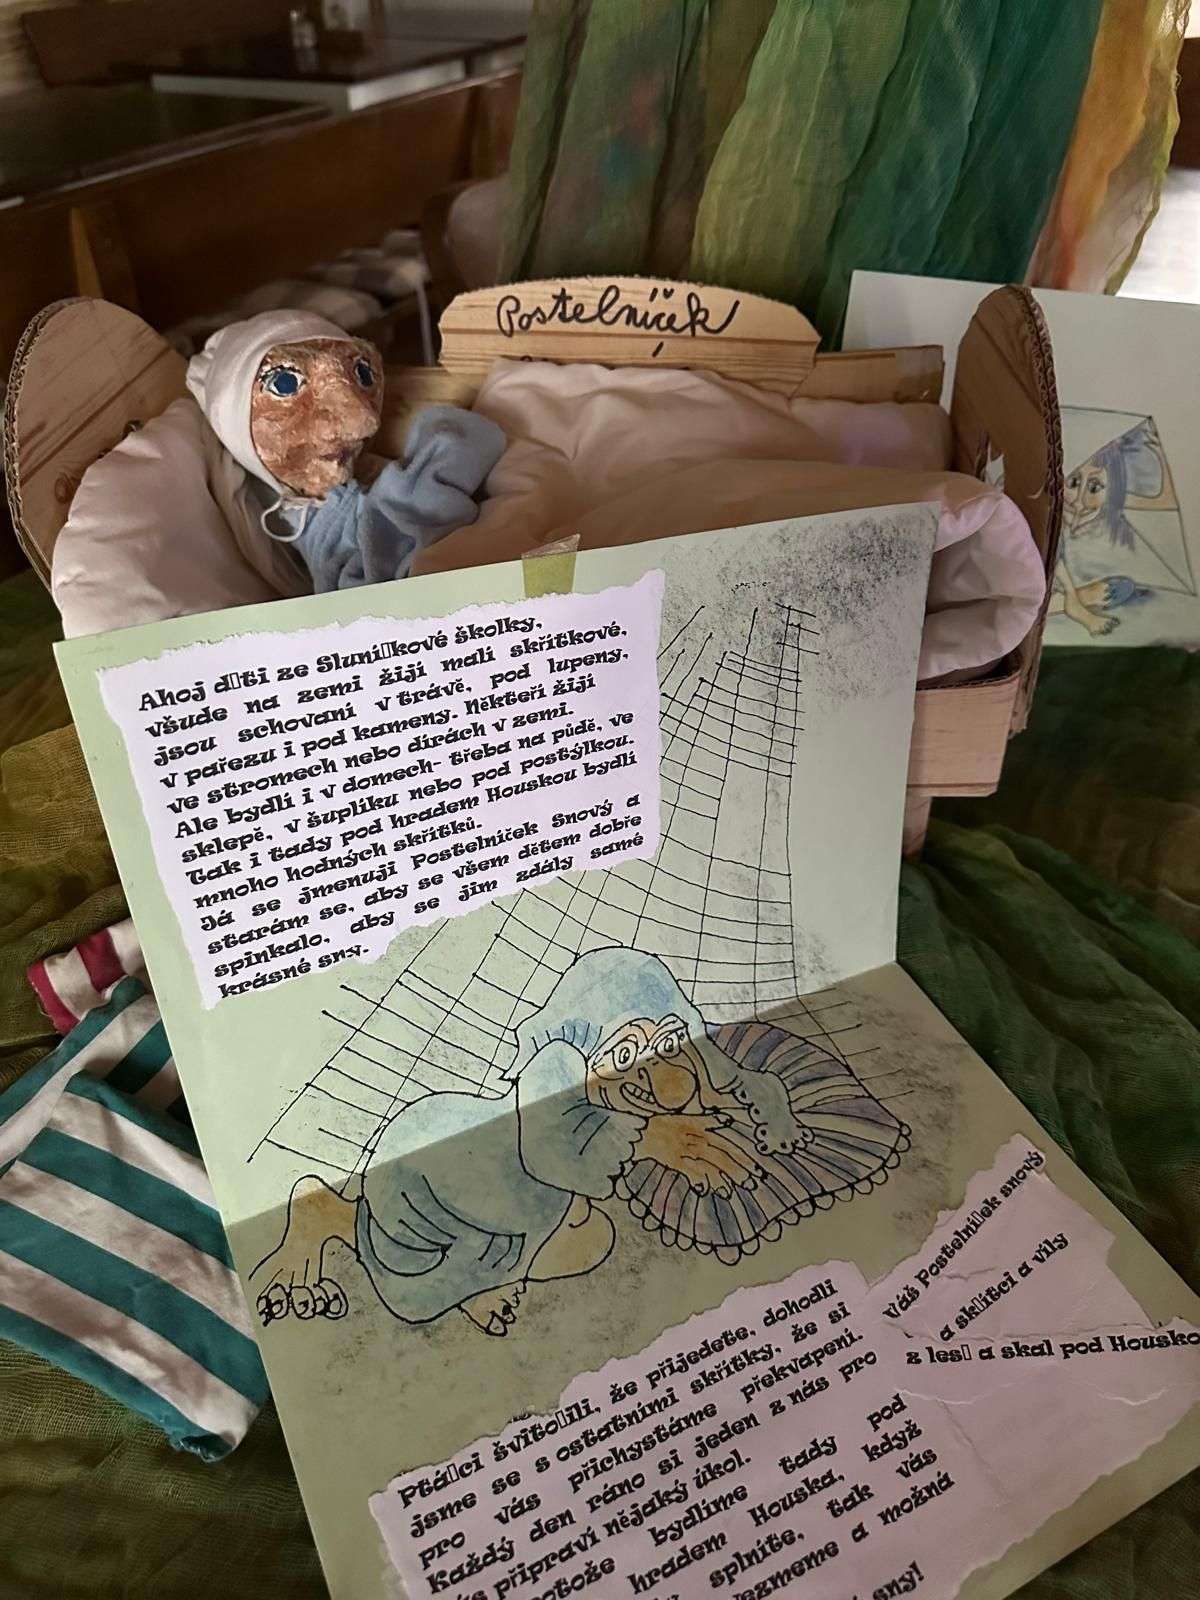 Postelníček
Ahoj d▯ti ze Sluní▯kové školky,
všude na zemi žijí malí skřítkové,
jsou schovaní v trávě, pod lupeny,
v pařezu i pod kameny. Někteří žijí
ve stromech nebo dírách v zemi.
Ale bydlí i v domech- třeba na půdě, ve
sklepě, v šuplíku nebo pod postýlkou.
Tak i tady pod hradem Houskou bydlí
mnoho hodných skřítků.
Já se jmenuji Postelníček Snový a
starám se, aby se všem dětem dobře
spinkalo, aby se jim zdály samé
krásné sny.
Ptá▯ci švito▯ili, že přijedete, dohodli
jsme se s ostatními skřítky, že si
pro vás přichystáme překvapení.
Každý den ráno si jeden z nás pro
připraví nějaký úkol.
bydlíme tady pod
hradem Houska, když
splníte, tak vás
a možná
sny!
Váš Postelní▯ek snový
a sk▯ítci a víly
z les▯ a skal pod Housko